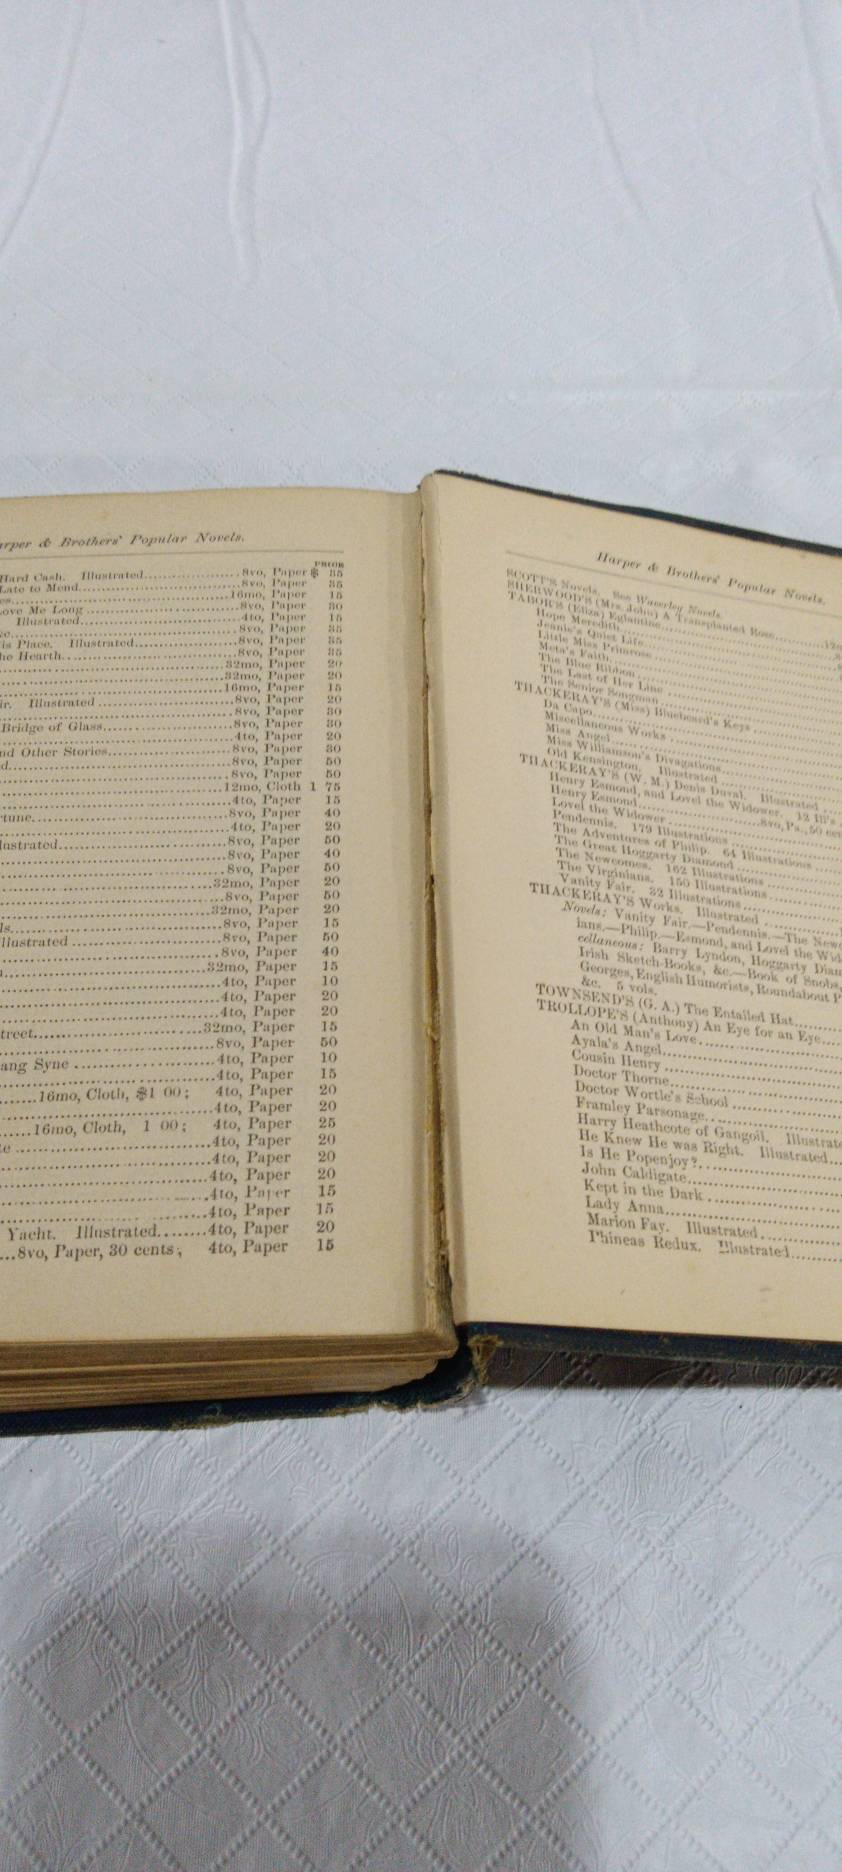 arper & Brothers' Popular Novels.
PRICE
Hard Cash. Illustrated 8vo, Paper $ 35
Late to Mend 8vo, Paper 35
16mo, Paper 15
Love Me Long 8vo, Paper 30
Illustrated 4to, Paper 15
8vo, Paper 35
is Place. Illustrated 8vo, Paper 35
he Hearth 8vo, Paper 35
32mo, Paper 20
32mo, Paper 20
16mo, Paper 15
ir. Illustrated 8vo, Paper 20
8vo, Paper 30
Bridge of Glass 8vo, Paper 30
4to, Paper 20
nd Other Stories 8vo, Paper 30
d 8vo, Paper 50
8vo, Paper 50
12mo, Cloth 1 75
4to, Paper 15
rtune 8vo, Paper 40
4to, Paper 20
lustrated 8vo, Paper 50
8vo, Paper 40
8vo, Paper 50
32mo, Paper 20
8vo, Paper 50
32mo, Paper 20
ls 8vo, Paper 15
llustrated 8vo, Paper 50
8vo, Paper 40
32mo, Paper 15
4to, Paper 10
4to, Paper 20
4to, Paper 20
treet 32mo, Paper 15
8vo, Paper 50
ang Syne 4to, Paper 10
4to, Paper 15
16mo, Cloth, $1 00; 4to, Paper 20
4to, Paper 20
16mo, Cloth, 1 00; 4to, Paper 25
te 4to, Paper 20
4to, Paper 20
4to, Paper 20
4to, Paper 15
4to, Paper 15
Yacht. Illustrated 4to, Paper 20
8vo, Paper, 30 cents; 4to, Paper 15
Harper & Brothers' Popular Novels.
SCOTT'S Novels. See Waverley Novels.
SHERWOOD'S (Mrs. John) A Transplanted Rose
TABOR'S (Eliza) Eglantine
Hope Meredith
Jeanie's Quiet Life
Little Miss Primrose
Meta's Faith
The Blue Ribbon
The Last of Her Line
The Senior Songman
THACKERAY'S (Miss) Bluebeard's Keys
Da Capo
Miscellaneous Works
Miss Angel
Miss Williamson's Divagations
Old Kensington. Illustrated
THACKERAY'S (W. M.) Denis Duval. Illustrated
Henry Esmond, and Lovel the Widower. 12 Ill's
Henry Esmond 8vo, Pa., 50 cen
Lovel the Widower
Pendennis. 179 Illustrations
The Adventures of Philip. 64 Illustrations
The Great Hoggarty Diamond
The Newcomes. 162 Illustrations
The Virginians. 150 Illustrations
Vanity Fair. 32 Illustrations
THACKERAY'S Works. Illustrated
Novels: Vanity Fair.—Pendennis.—The Newc
ians.—Philip.—Esmond, and Lovel the Wid
cellaneous: Barry Lyndon, Hoggarty Diam
Irish Sketch-Books, &c.—Book of Snobs,
Georges, English Humorists, Roundabout P
&c. 5 vols.
TOWNSEND'S (G. A.) The Entailed Hat
TROLLOPE'S (Anthony) An Eye for an Eye
An Old Man's Love
Ayala's Angel
Cousin Henry
Doctor Thorne
Doctor Wortle's School
Framley Parsonage
Harry Heathcote of Gangoil. Illustrate
He Knew He was Right. Illustrated
Is He Popenjoy?
John Caldigate
Kept in the Dark
Lady Anna
Marion Fay. Illustrated
Phineas Redux. Illustrated